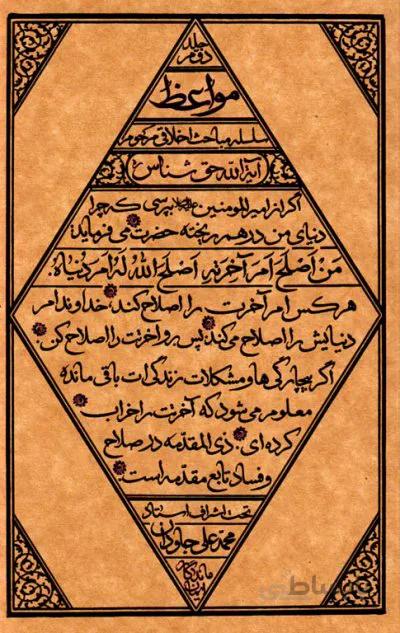 جلد
دوم
مواعظ
سلسله مباحث اخلاقی مرحوم
آیة الله حق شناس (ره)
اگر از امیرالمومنین علیه السلام بپرسی که چرا
دنیای من درهم ریخته حضرت می فرماید:
مَنْ أَصْلَحَ أَمْرَ آخِرَتِهِ أَصْلَحَ اللهُ لَهُ أَمْرَ دُنْیَاهُ.
هر کس امر آخرت را اصلاح کند، خداوند امر
دنیایش را اصلاح می کند، پس برو آخرتت را اصلاح کن.
اگر بیچارگی ها و مشکلات زندگی ات باقی مانده
معلوم می شود که آخرتت را خراب
کرده ای. ذی المقدمه در صلاح
و فساد تابع مقدمه است.
تحت اشراف استاد
محمد علی جاودان
ماندگار